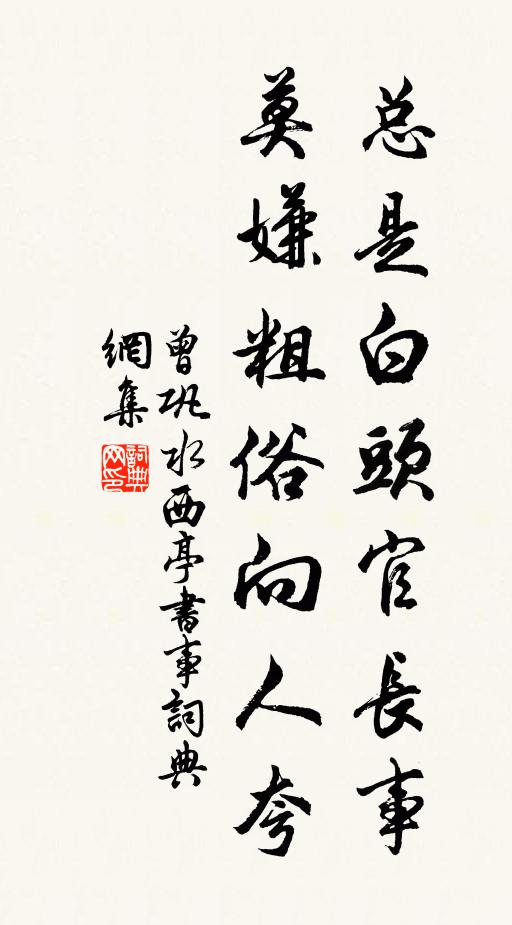 总是白頭官長事
莫嫌粗俗向人夸
曾巩水西亭書事詞典
網集
詞典
网印